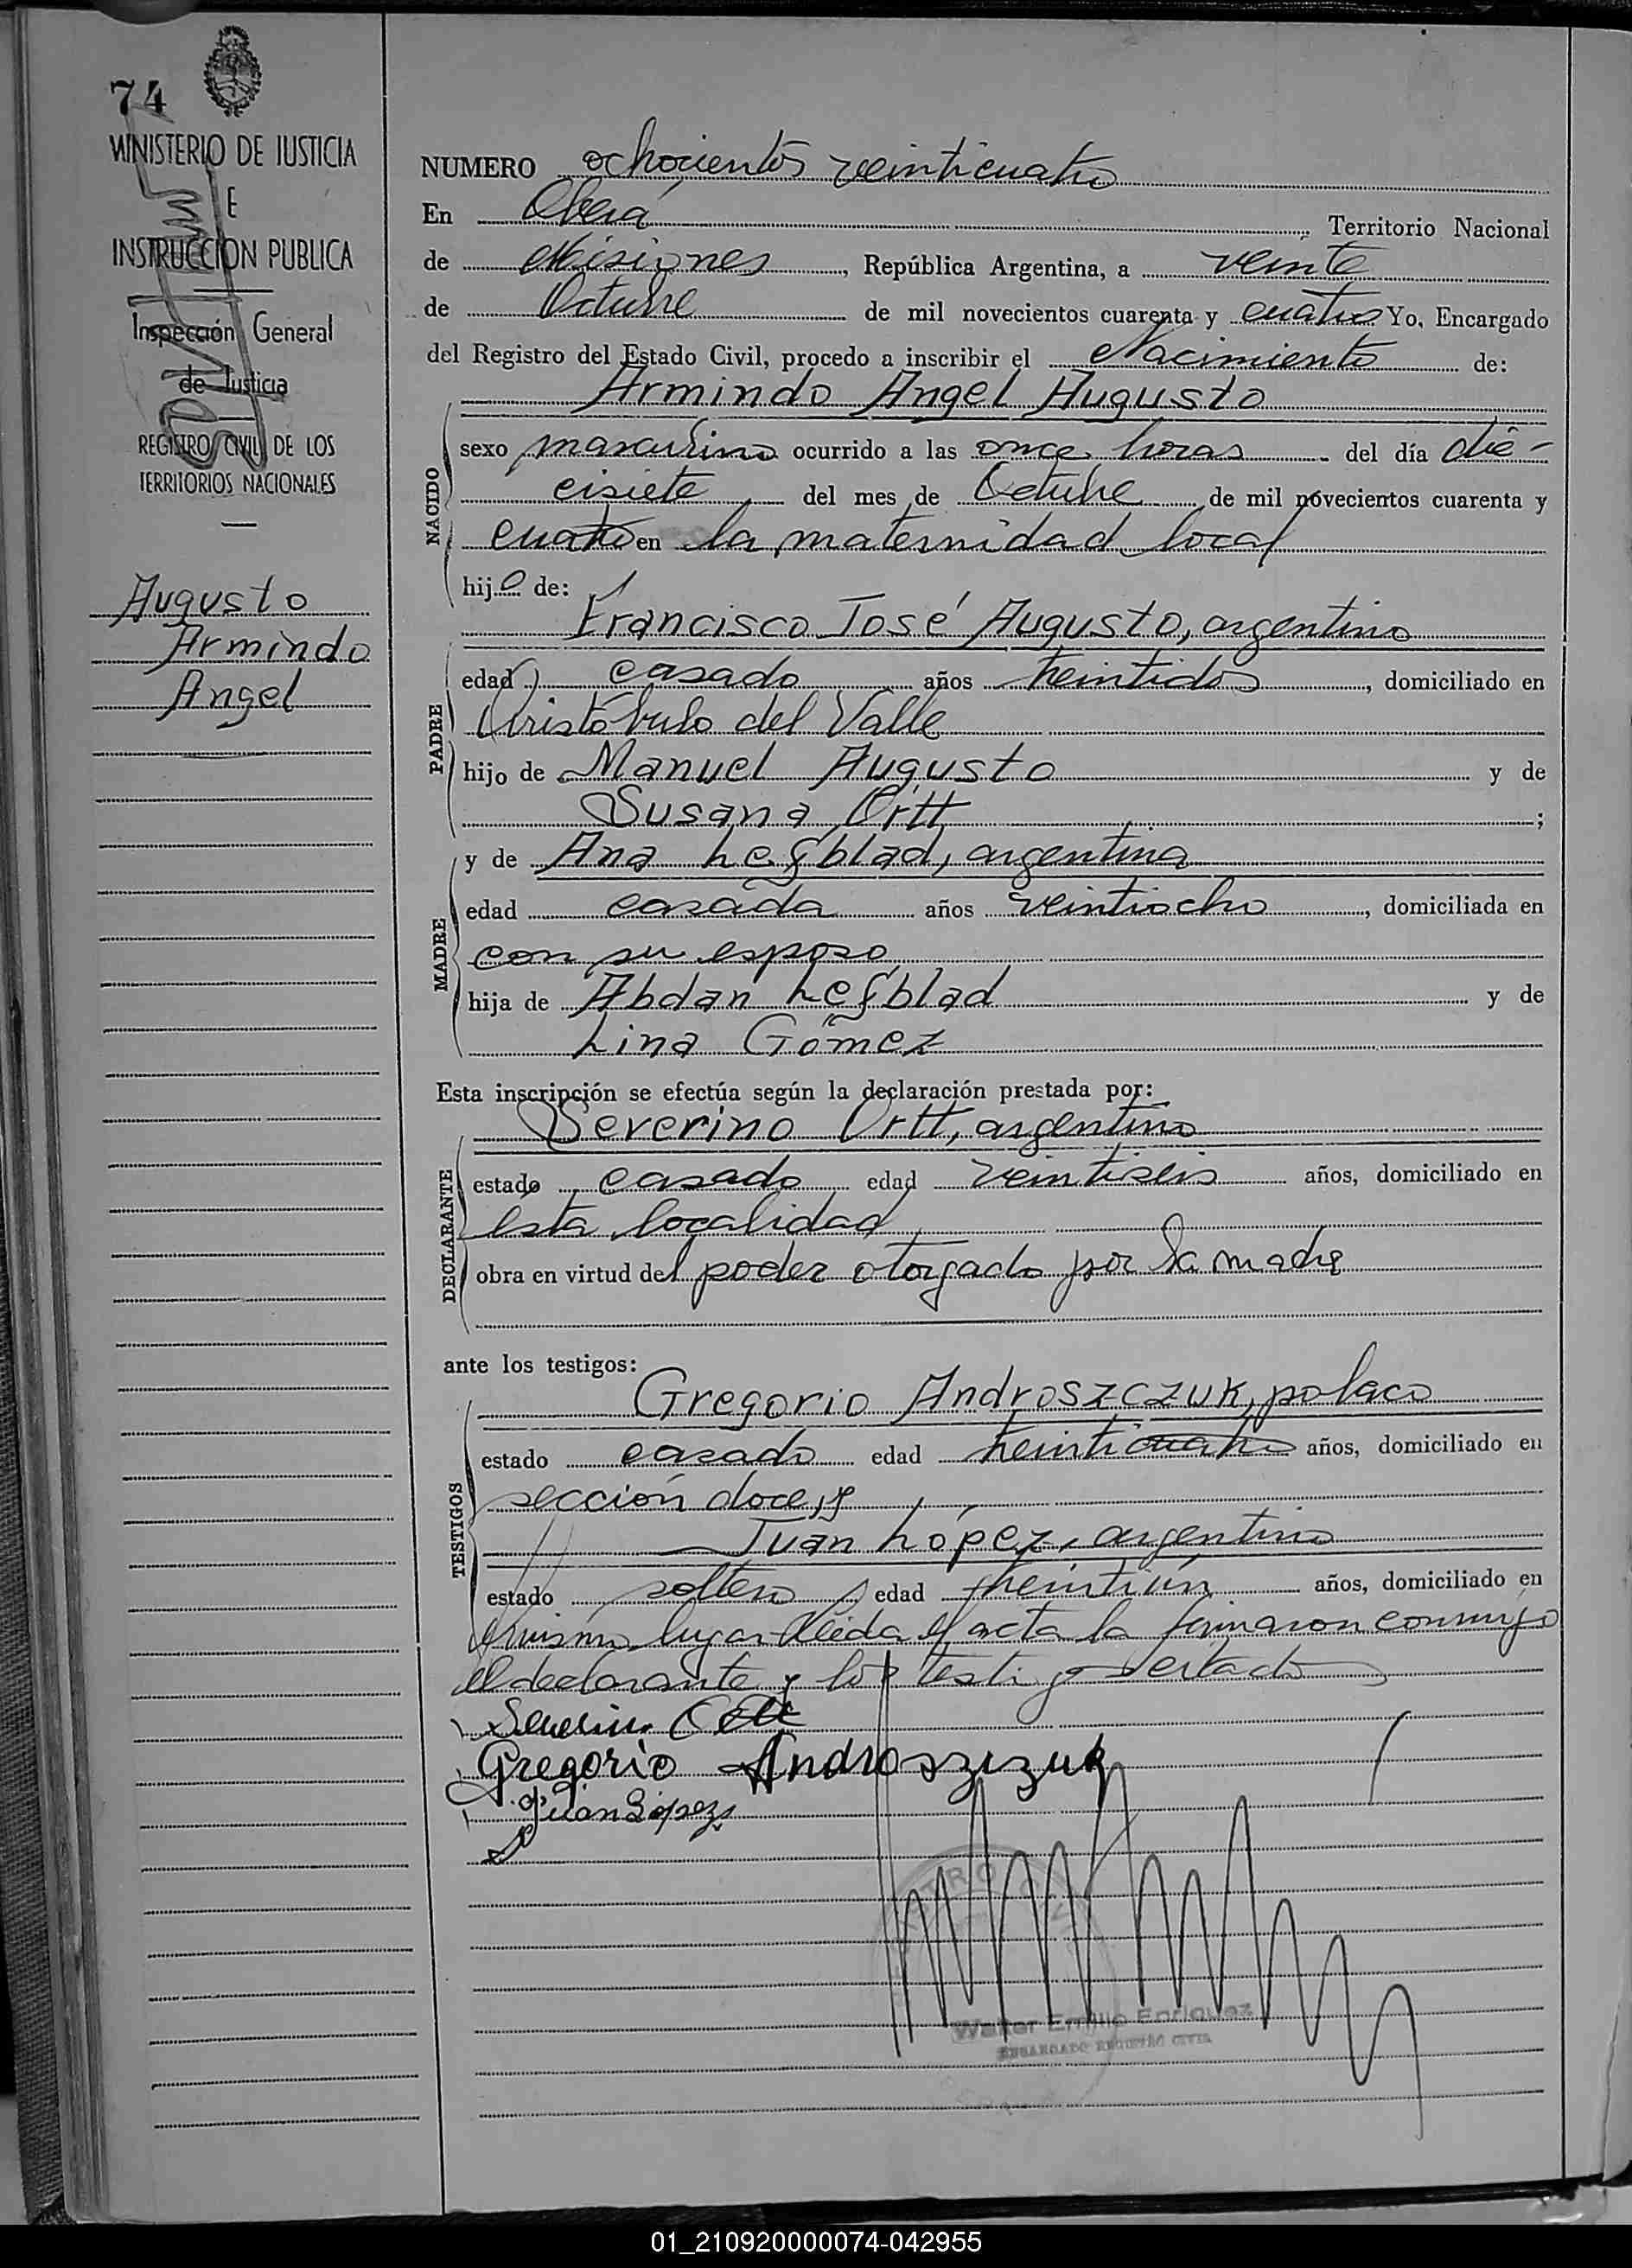 74
MINISTERIO DE JUSTICIA
E
INSTRUCCION PUBLICA
Inspección General
de Justicia
REGISTRO CIVIL DE LOS
TERRITORIOS NACIONALES
Augusto
Armindo
Angel
NUMERO ochocientos veinticuatro
En Oberá, Territorio Nacional
de Misiones, República Argentina, a veinte
de Octubre de mil novecientos cuarenta y cuatro Yo, Encargado
del Registro del Estado Civil, procedo a inscribir el Nacimiento de:
Armindo Angel Augusto
NACIDO
sexo masculino ocurrido a las once horas del día die-
cisiete del mes de Octubre de mil novecientos cuarenta y
cuatro en la maternidad local
hijo de:
Francisco José Augusto, argentino
PADRE
edad casado años treintidos, domiciliado en
Aristóbulo del Valle
hijo de Manuel Augusto y de
Susana Ortt;
y de Ana Lefblad, argentina
MADRE
edad casada años veintiocho, domiciliada en
con su esposo
hija de Abdan Lefblad y de
Lina Gómez
Esta inscripción se efectúa según la declaración prestada por:
Severino Ortt, argentino
DECLARANTE
estado casado edad veintiseis años, domiciliado en
esta localidad
obra en virtud del poder otorgado por la madre
ante los testigos:
Gregorio Androszczuk, polaco
TESTIGOS
estado casado edad treinticuatro años, domiciliado en
sección doce, y
Juan López, argentino
estado soltero edad treintiún años, domiciliado en
mismo lugar Leida el acta la firmaron conmigo
el declarante y los testigos citados
Severino Ortt
Gregorio Androszczuk
Juan López
Walter Emilio Enriquez
ENCARGADO REGISTRO CIVIL
01_210920000074-042955